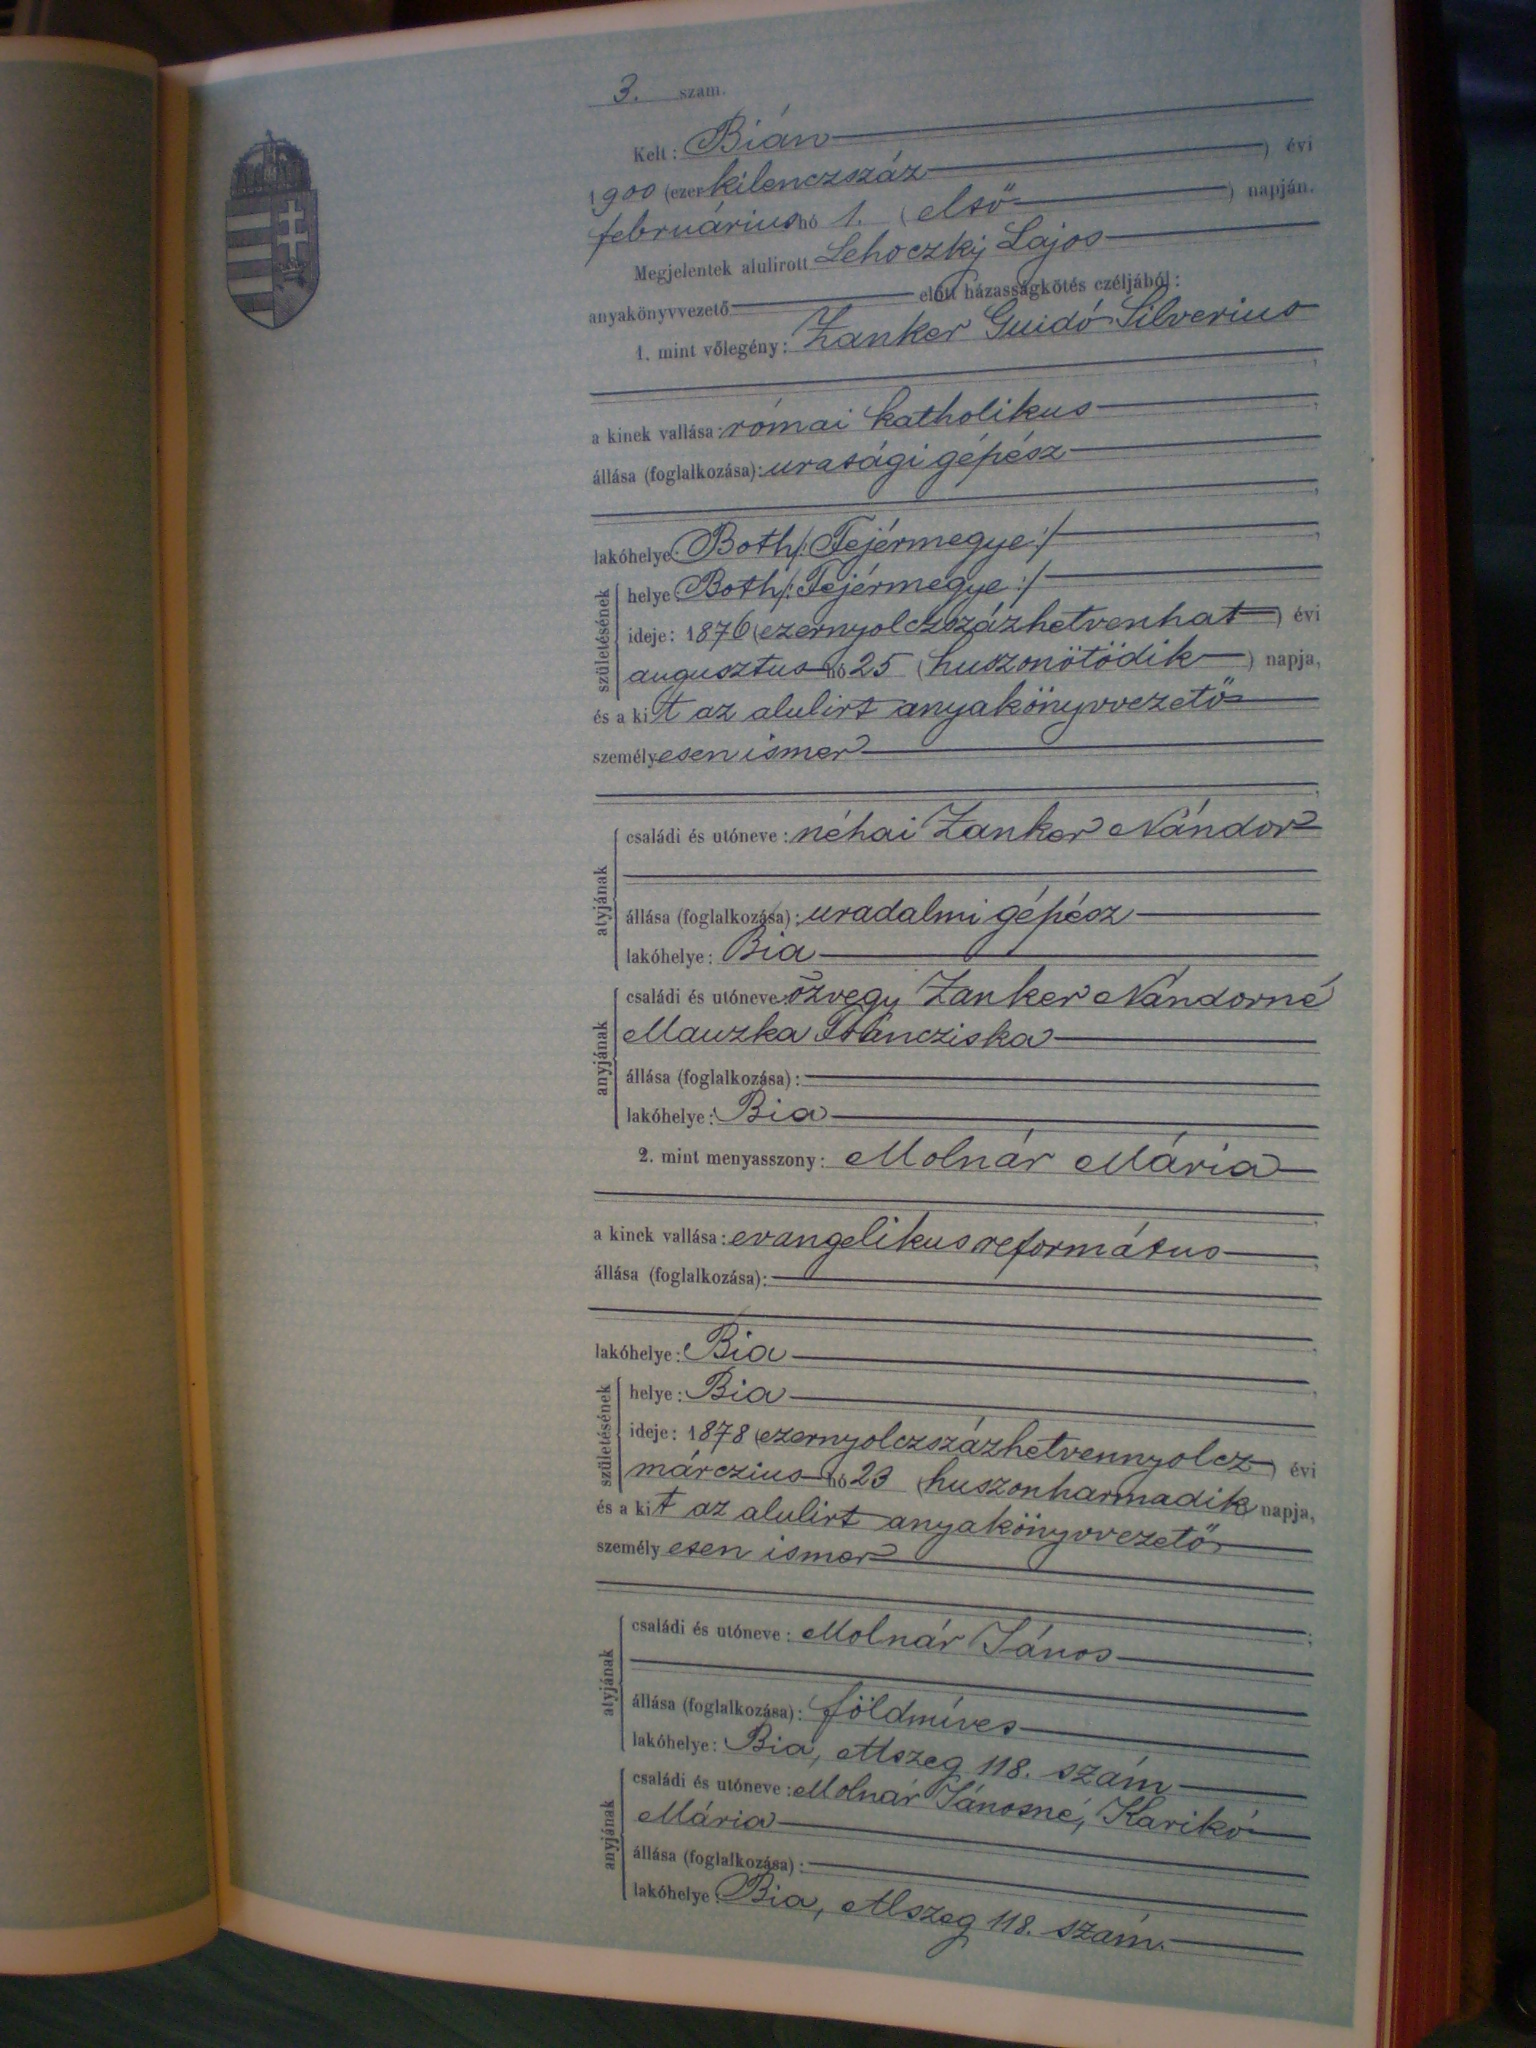 3. szam.
Kelt: Bián
1900 (ezerkilenczszáz) évi
februárius hó 1. (első) napján.
Megjelentek alulirott Lehoczky Lajos
anyakönyvvezető előtt házasságkötés czéljából:
1. mint vőlegény: Zanker Guidó Silverius
a kinek vallása: római katholikus,
állása (foglalkozása): urasági gépész,
lakóhelye: Both /: Fejérmegye :/,
születésének
helye: Both /: Fejérmegye :/
ideje: 1876 (ezernyolczszázhetvenhat) évi
augusztus hó 25 (huszonötödik) napja,
és a kit az alulirt anyakönyvvezető
személyesen ismer,
atyjának
családi és utóneve: néhai Zanker Nándor
állása (foglalkozása): uradalmi gépész
lakóhelye: Bia
anyjának
családi és utóneve: özvegy Zanker Nándorné
Mauzka Francziska
állása (foglalkozása):
lakóhelye: Bia
2. mint menyasszony: Molnár Mária,
a kinek vallása: evangelikus református,
állása (foglalkozása):
lakóhelye: Bia,
születésének
helye: Bia
ideje: 1878 (ezernyolczszázhetvennyolcz) évi
márczius hó 23 (huszonharmadik napja,
és a kit az alulirt anyakönyvvezető
személyesen ismer;
atyjának
családi és utóneve: Molnár János
állása (foglalkozása): földmíves
lakóhelye: Bia, Alszeg 118. szám
anyjának
családi és utóneve: Molnár Jánosné, Karikó
Mária
állása (foglalkozása):
lakóhelye: Bia, Alszeg 118. szám.